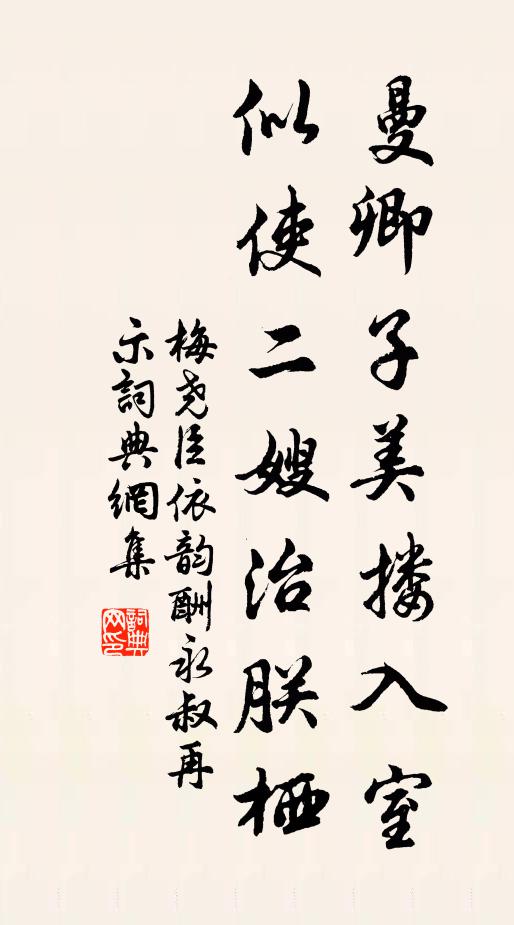 曼卿子美搂入室
似使二嫂治朕栖
梅尧臣依韵酬永叔再
示詞典網集
詞典網印